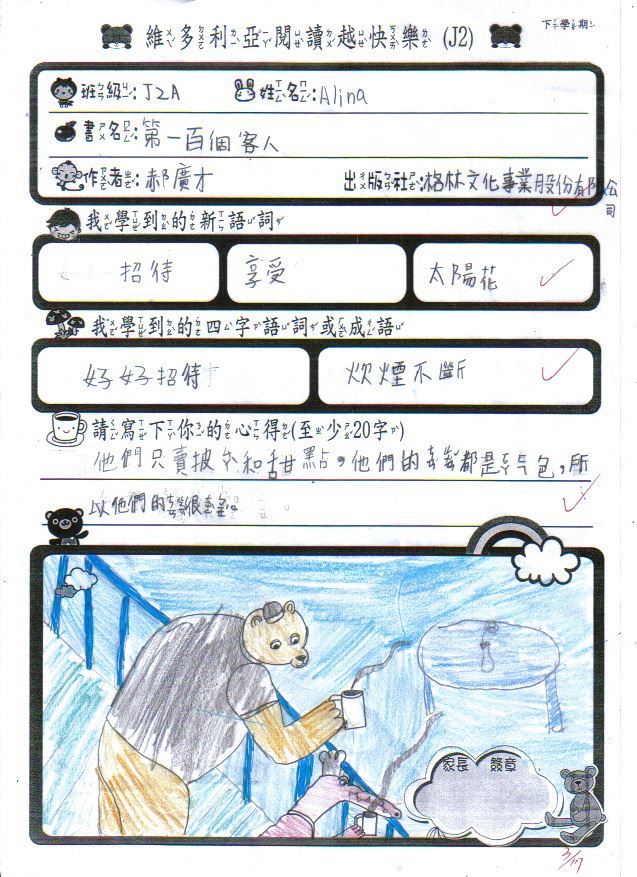 下學期
維多利亞閱讀越快樂 (J2)
班級:J2A 姓名:Alina
書名:第一百個客人
作者:郝廣才 出版社:格林文化事業股份有限公司
我學到的新語詞
招待 享受 太陽花
我學到的四字語詞或成語
好好招待 炊煙不斷
請寫下你的心得(至少20字)
他們只賣披ㄙㄚ和甜點,他們的 都是 包,所
以他們的 很
家長 簽章
3/17